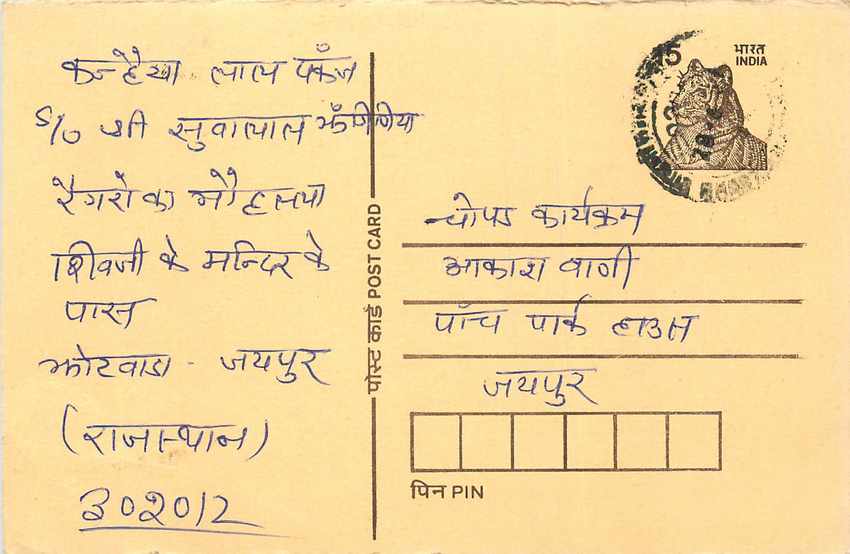 कन्हैया लाल पंकज
S/o श्री सुवालाल झँगिणिया
रैगरो का मौहल्ला
शिवजी के मन्दिर के
पास
झोटवाडा - जयपुर
(राजास्थान)
302012
पोस्ट कार्ड POST CARD
15
भारत
INDIA
चोपड कार्यक्रम
आकाश वाणी
पाँच पार्क हाउस
जयपुर
पिन PIN